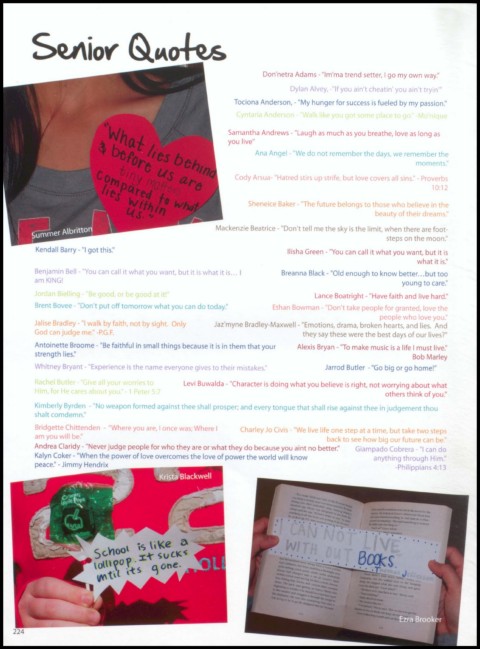 Senior Quotes
Don'netra Adams - "Im'ma trend setter, i go my own way."
Dylan Alvey, -"If you ain't cheatin' you ain't tryin'"
Tociona Anderson, - "My hunger for success is fueled by my passion."
Anderson - "Walk like you got some place to go."
Samantha Andrews - "Laugh as much as you breathe, love as long as
you live"
Ana Angel - "We do not remember the days, we remember the
moments."
Cody Arsue- "Hatred stirs up strife, but love covers all sins." - Proverbs
10:12
Sheneice Baker - "The future belongs to those who believe in the
beauty of their dreams."
Mackenzie Beatrice - "Don't tell me the sky is the limit, when there are foot-
steps on the moon."
"What lies behind
& before us are
tiny matters
compared to what
lies within
us."
Summer Albritton
Kendall Barry - "I got this."
Ilisha Green - "You can call it what you want, but it is
what it is."
Benjamin Bell - "You can call it what you want, but it is what it is… I
am KING!
Breanna Black - "Old enough to know better…but too
young to care."
Jordan Bielling - "Be good, or be good at it!"
Lance Boatright - "Have faith and live hard."
Brent Bovee - "Don't put off tomorrow what you can do today."
Ethan Bowman - "Don't take people for granted, love the
people who love you."
Jalise Bradley - "I walk by faith, not by sight. Only
God can judge me."-P.G.F.
Jaz'myne Bradley-Maxwell - "Emotions, drama, broken hearts, and lies. And
they say these were the best days of our lives?"
Antoinette Broome - "Be faithful in small things because it is in them that your
strength lies."
Alexis Bryan - "To make music is a life I must live."
Bob Marley
Whitney Bryant - "Experience is the name everyone gives to their mistakes."
Jarrod Butler - "Go big or go home!"
Rachel Butler - "Give all your worries to
him, for He cares about you." - 1 Peter 5:7
Levi Buwalda - "Character is doing what you believe is right, not worrying about what
others think of you."
Kimberly Byrden - "No weapon formed against thee shall prosper; and every tongue that shall rise against thee in judgement thou
shalt comdemn."
Bridgette Chittenden - "Where you are, I once was; Where I
am you will be."
Charley Jo Civis - "We live life one step at a time, but take two steps
back to see how big our future can be".
Andrea Claridy - "Never judge people for who they are or what they do because you aint no better."
Giampado Cobrera - "I can do
anything through Him."
-Philippians 4:13
Kalyn Coker - "When the power of love overcomes the love of power the world will know
peace." - Jimmy Hendrix
Krista Blackwell
School is like a
lollipop. It sucks
until its gone.
I CAN NOT LIVE
WITH OUT BOOKS.
Ezra Brooker
224